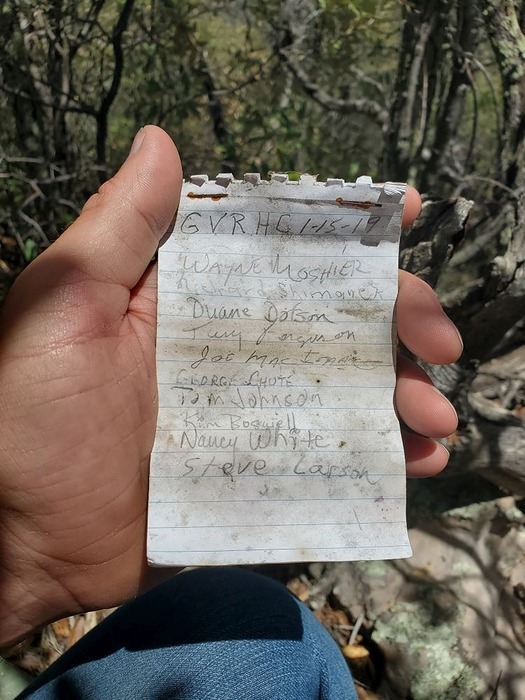 GVRHC 1-15-17
WAYNE MOSHIER
Richard Shimanek
Duane Dotson
Terry Ferguson
Joe Mac
GEORGE CHUTE
Tom Johnson
Kim Boswell
Nancy White
Steve Larson